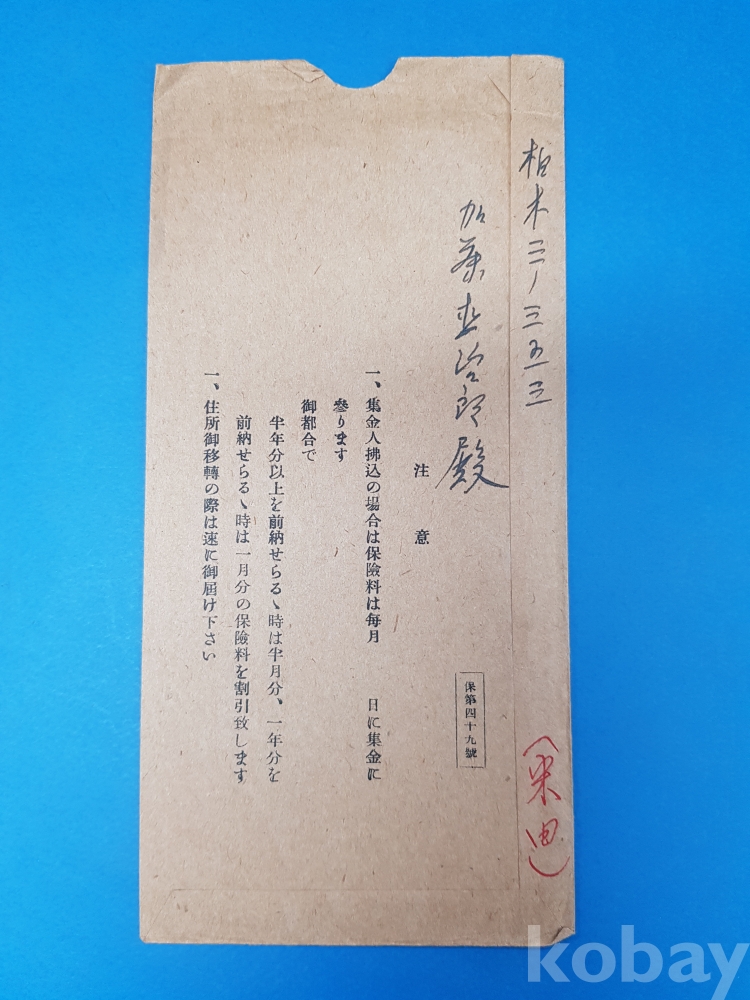 柏木三ノ三五三
加藤直治郎殿
注意
一、集金人拂込の場合は保險料は毎月 日に集金に
參ります
御都合で
半年分以上を前納せらるゝ時は半月分、一年分を
前納せらるゝ時は一月分の保險料を割引致します
一、住所御移轉の際は速に御届け下さい
保第四十九號
(米田)
kobay